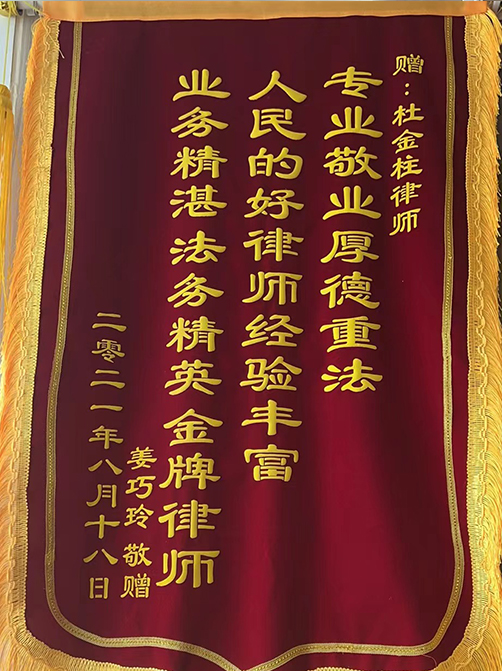 赠：杜金柱律师
专业敬业厚德重法
人民的好律师经验丰富
业务精湛法务精英金牌律师
姜巧玲 敬赠
二零二一年八月十八日